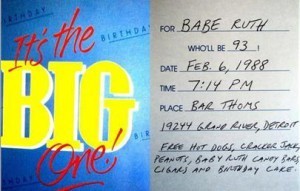 BIRTHDAY
BIRTHDAY
It's the
BIG
One!
BIRTHDAY
FOR BABE RUTH
WHO'LL BE 93!
DATE FEB. 6, 1988
TIME 7:14 PM
PLACE BAR THOMS
19244 GRAND RIVER, DETROIT
FREE HOT DOGS, CRACKER JACK,
PEANUTS, BABY RUTH CANDY BARS,
CIGARS AND BIRTHDAY CAKE.